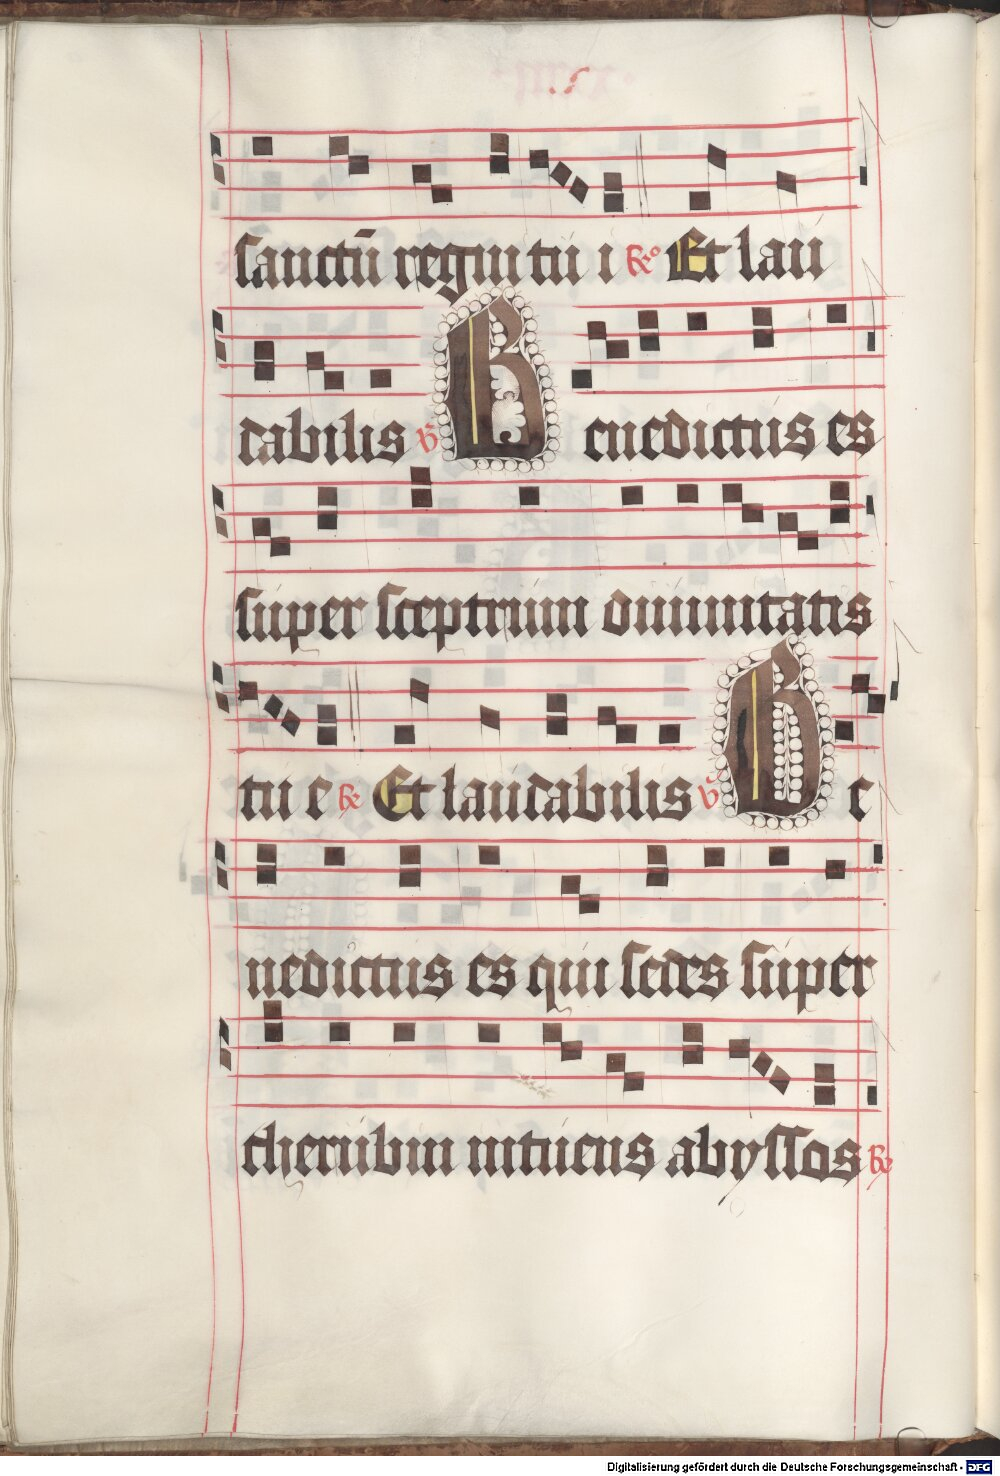 sanctū regni tu i ℟o Et lau
dabilis ℣ Benedictus es
super sceptrum divinitatis
tu e ℟ Et laudabilis ℣ Be
nedictus es qui sedes super
cherubin intuens abyssos ℟
Digitalisierung gefördert durch die Deutsche Forschungsgemeinschaft - DFG